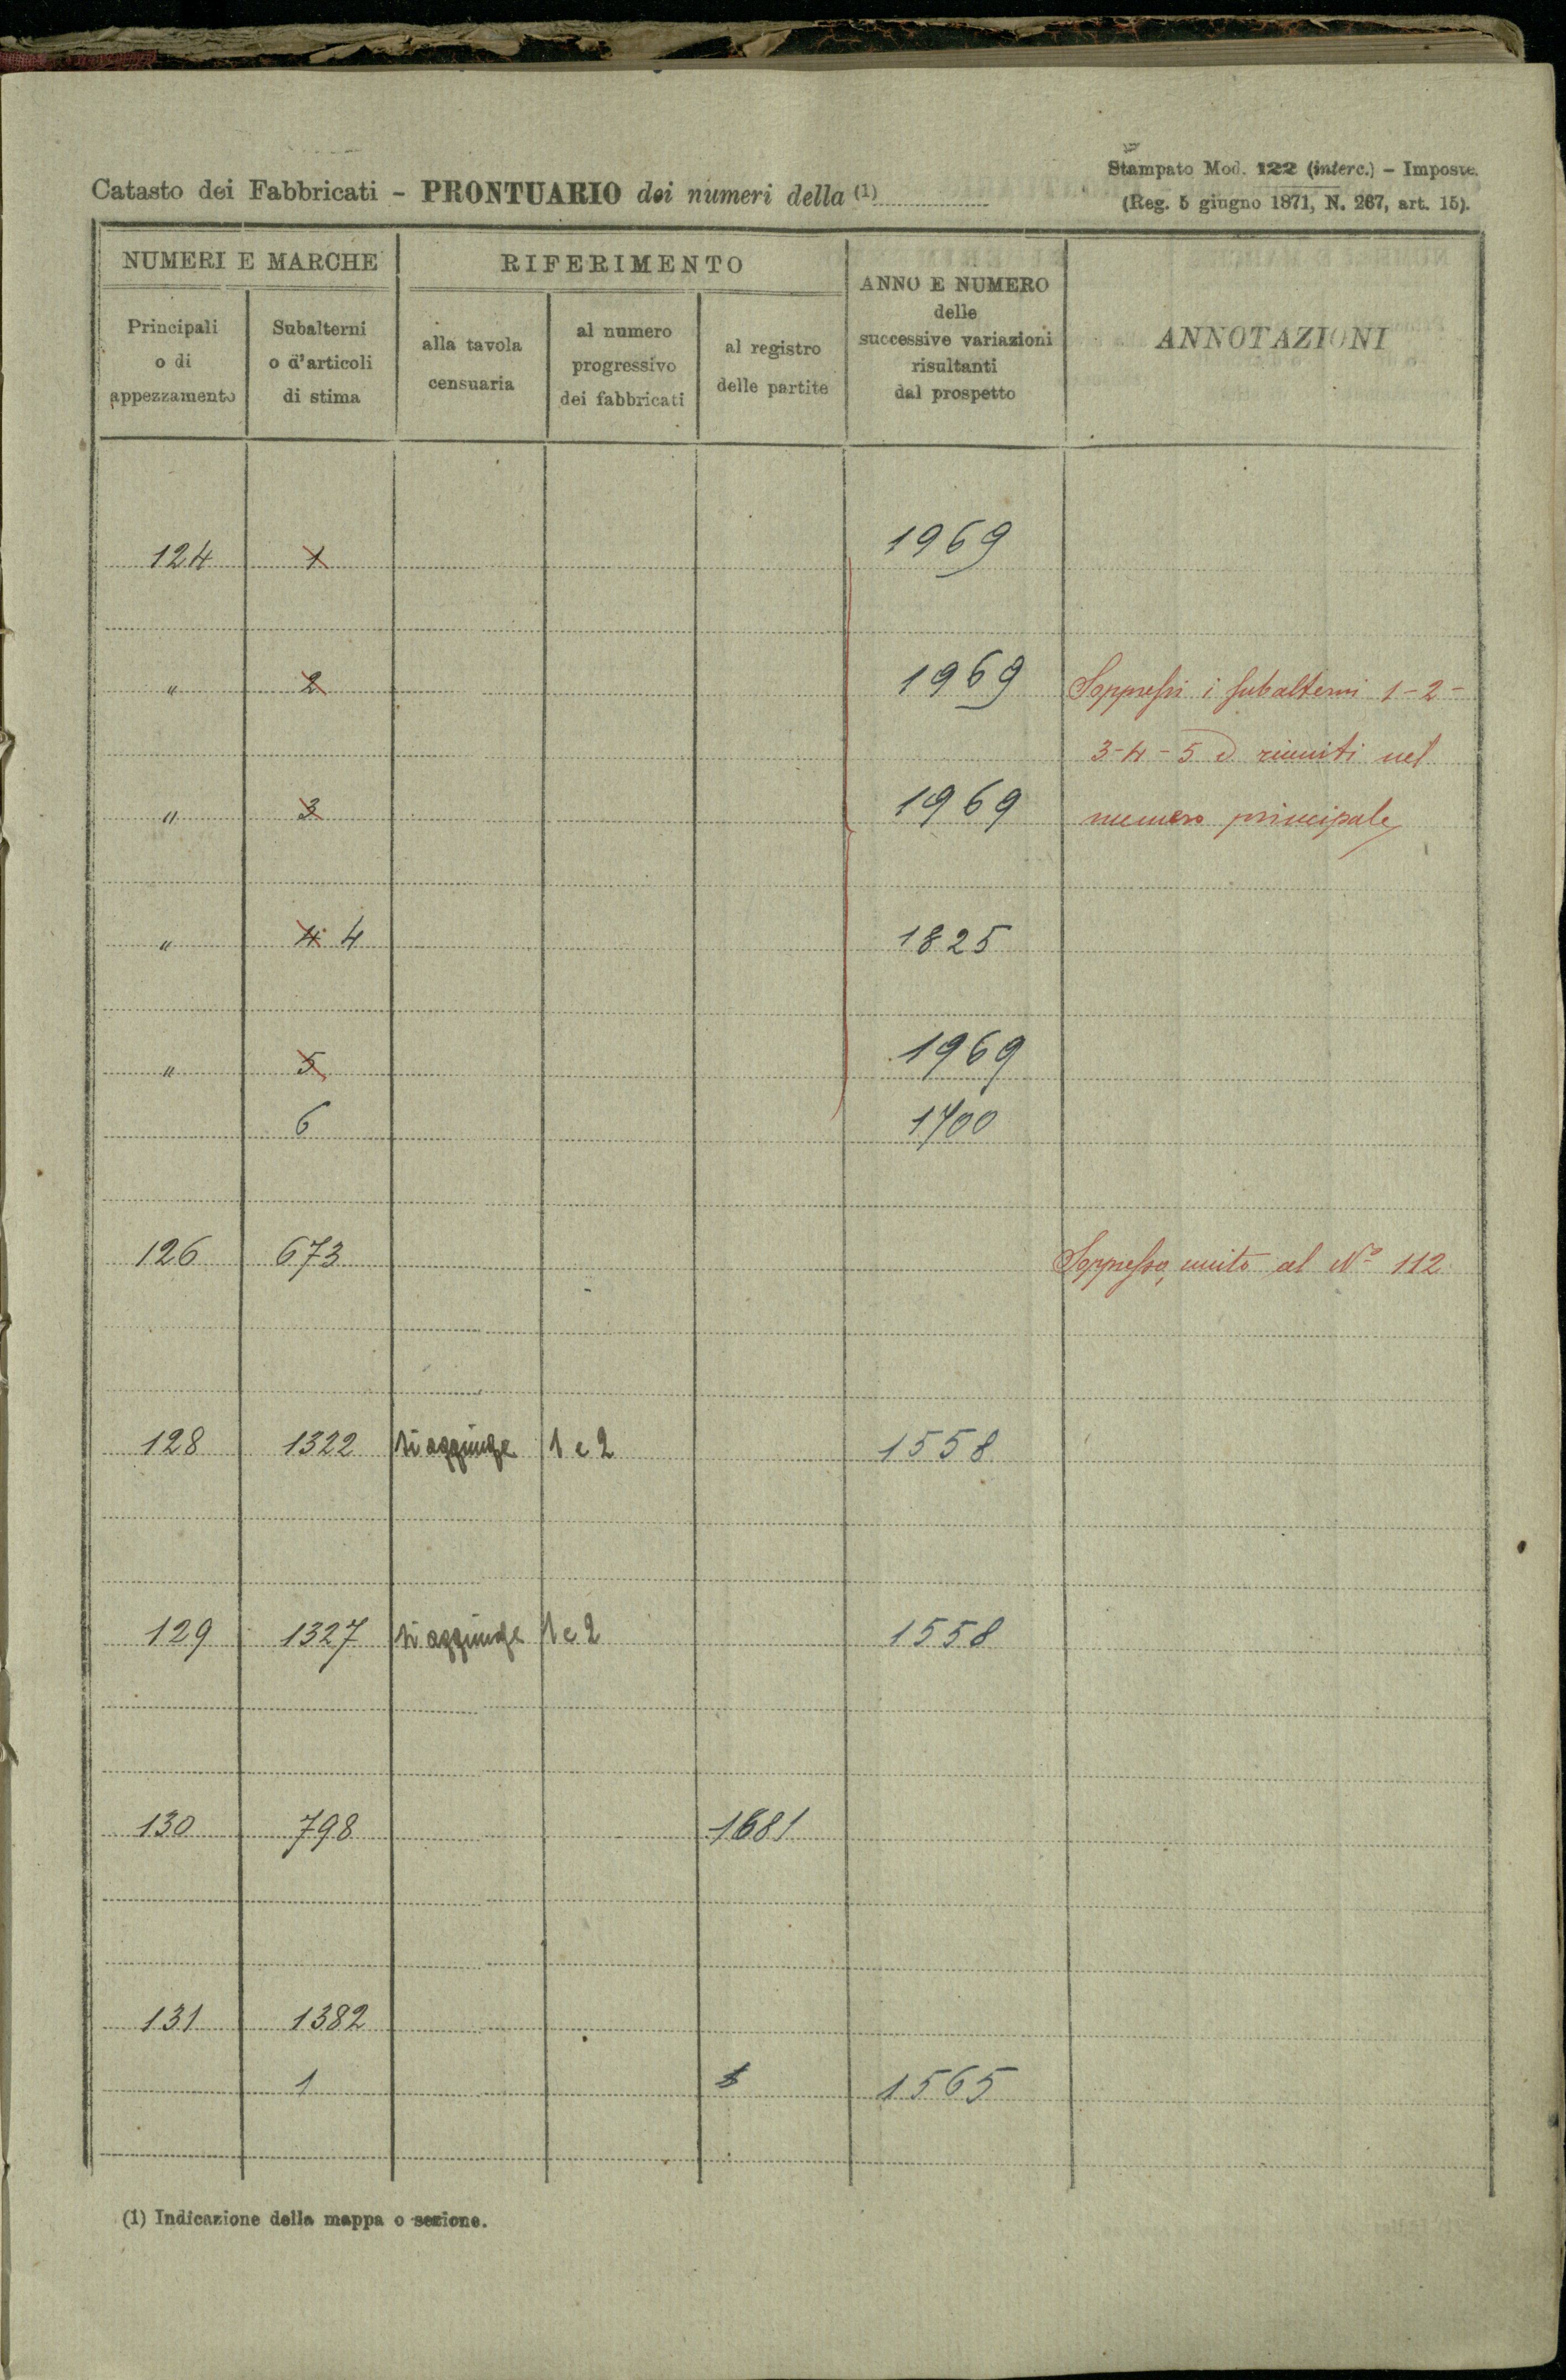 Stampato Mod. 122 (interc.) – Imposte.
(Reg. 5 giugno 1871, N. 267, art. 15).
Catasto dei Fabbricati – PRONTUARIO dei numeri della (1)
NUMERI E MARCHE
RIFERIMENTO
ANNO E NUMERO
delle
successive variazioni
risultanti
dal prospetto
ANNOTAZIONI
Principali
o di
appezzamento
Subalterni
o d'articoli
di stima
alla tavola
censuaria
al numero
progressivo
dei fabbricati
al registro
delle partite
124 1 1969
" 2 1969 Soppressi i subalterni 1-2-
3-4-5 e riuniti nel
" 3 1969 numero principale
" 4 4 1825
" 5 1969
6 1700
126 673 Soppesso, unito al N° 112
128 1322 si aggiunge 1 e 2 1558
129 1327 si aggiunge 1 e 2 1558
130 798 1681
131 1382
1 1565
(1) Indicazione della mappa o sezione.